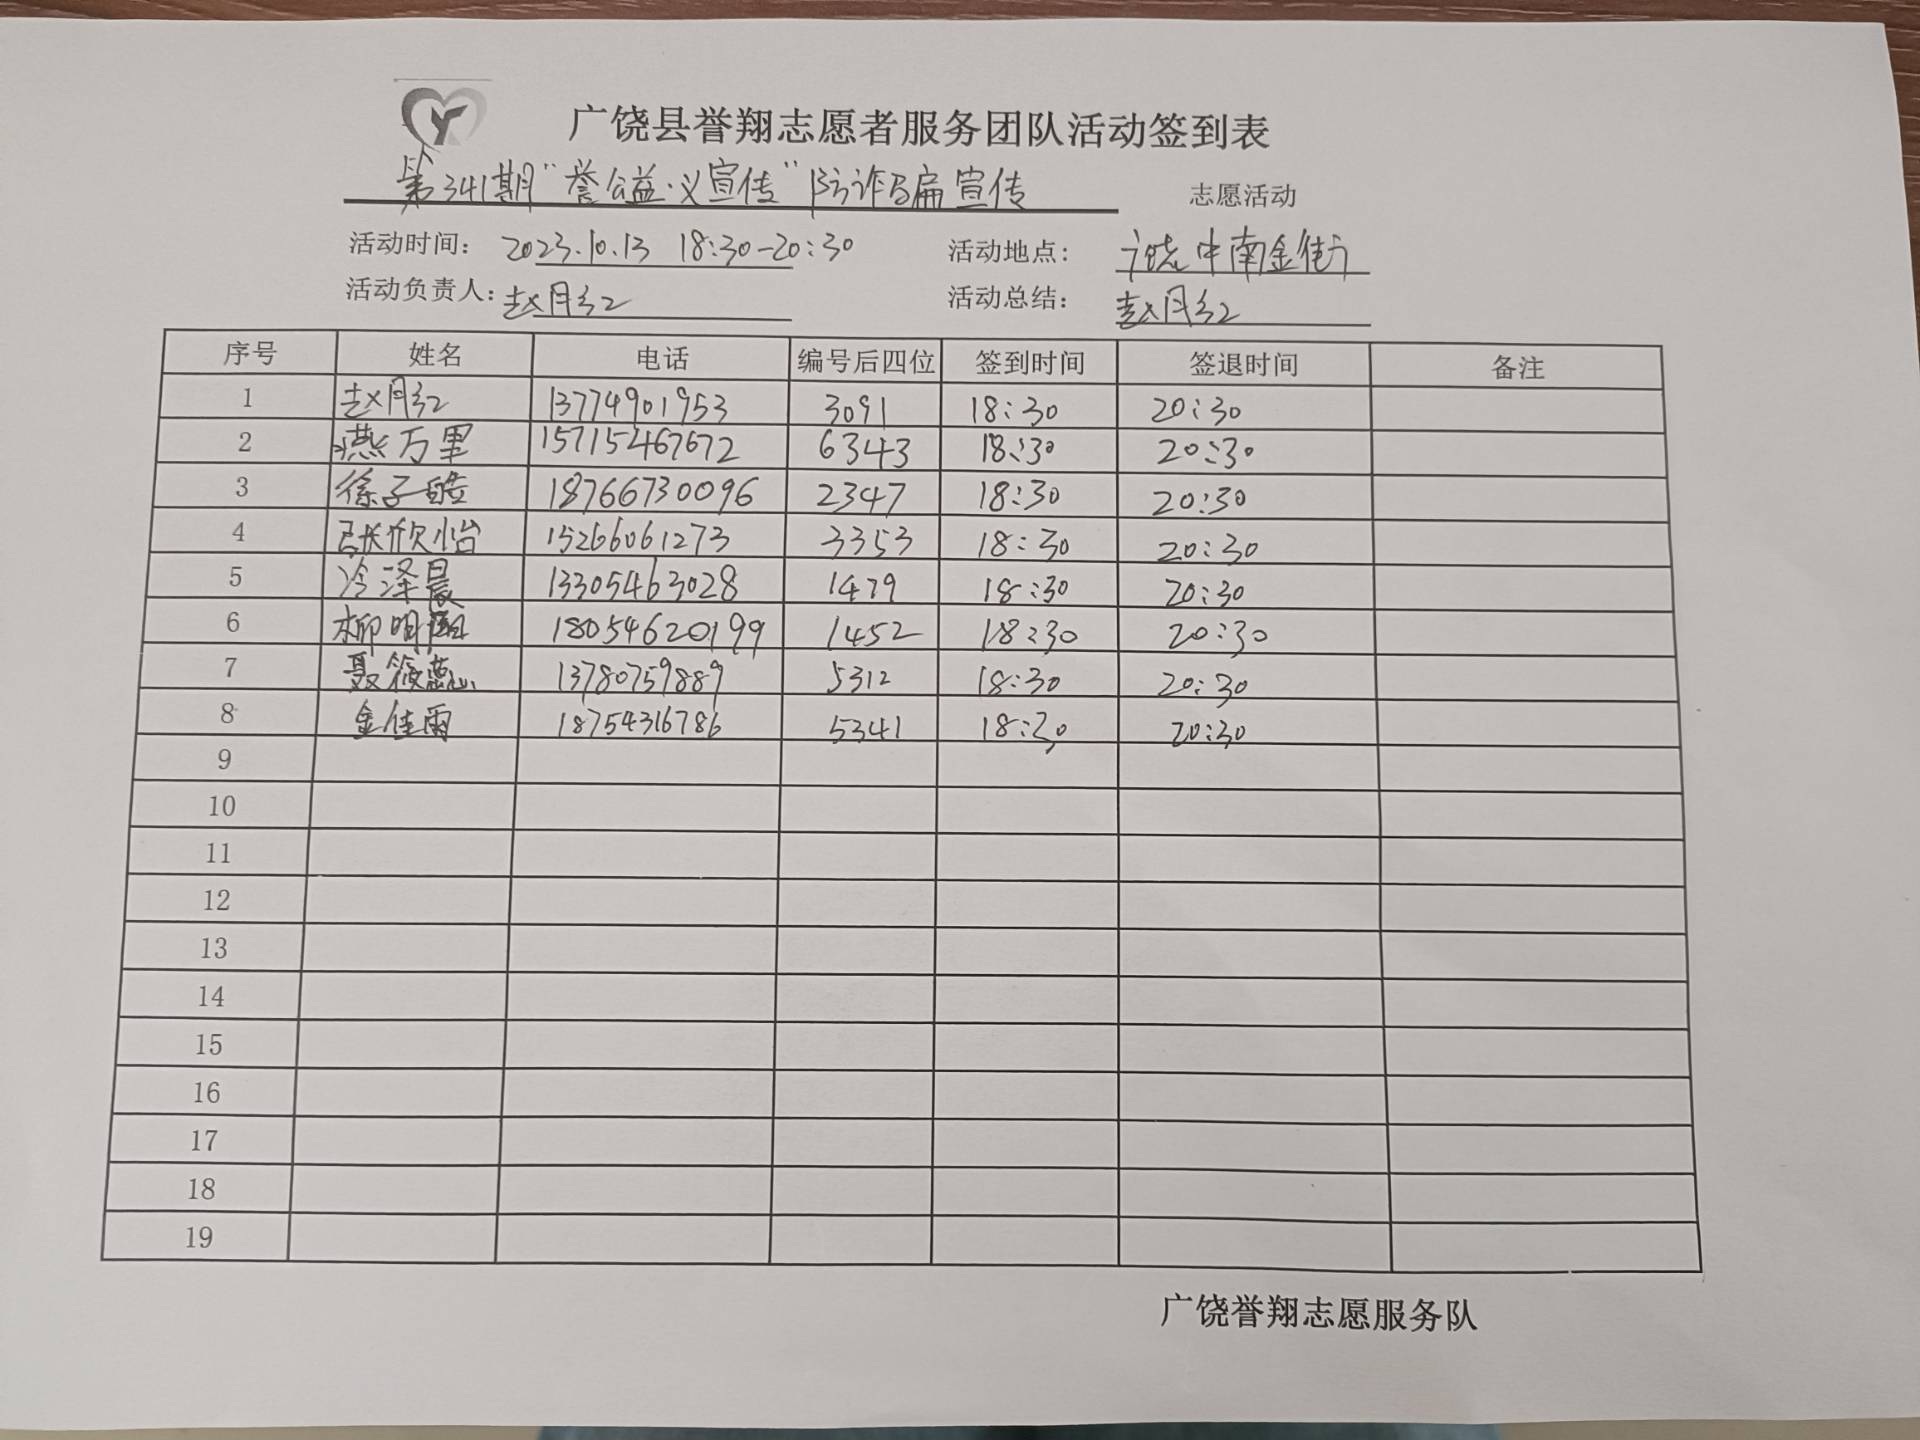 广饶县誉翔志愿者服务团队活动签到表
第341期"誉公益·义宣传"防诈骗宣传 志愿活动
活动时间: 2023.10.13 18:30-20:30 活动地点: 广饶中南金街
活动负责人: 赵月红 活动总结: 赵月红
序号 姓名 电话 编号后四位 签到时间 签退时间 备注
1 赵月红 13774901953 3091 18:30 20:30
2 燕万里 15715467672 6343 18:30 20:30
3 徐子皓 18766730096 2347 18:30 20:30
4 张欣怡 15266061273 3353 18:30 20:30
5 冷泽晨 13305463028 1479 18:30 20:30
6 柳明 18054620199 1452 18:30 20:30
7 聂筱蕊 13780759889 5312 18:30 20:30
8 金佳雨 18754316786 5341 18:30 20:30
9
10
11
12
13
14
15
16
17
18
19
广饶誉翔志愿服务队